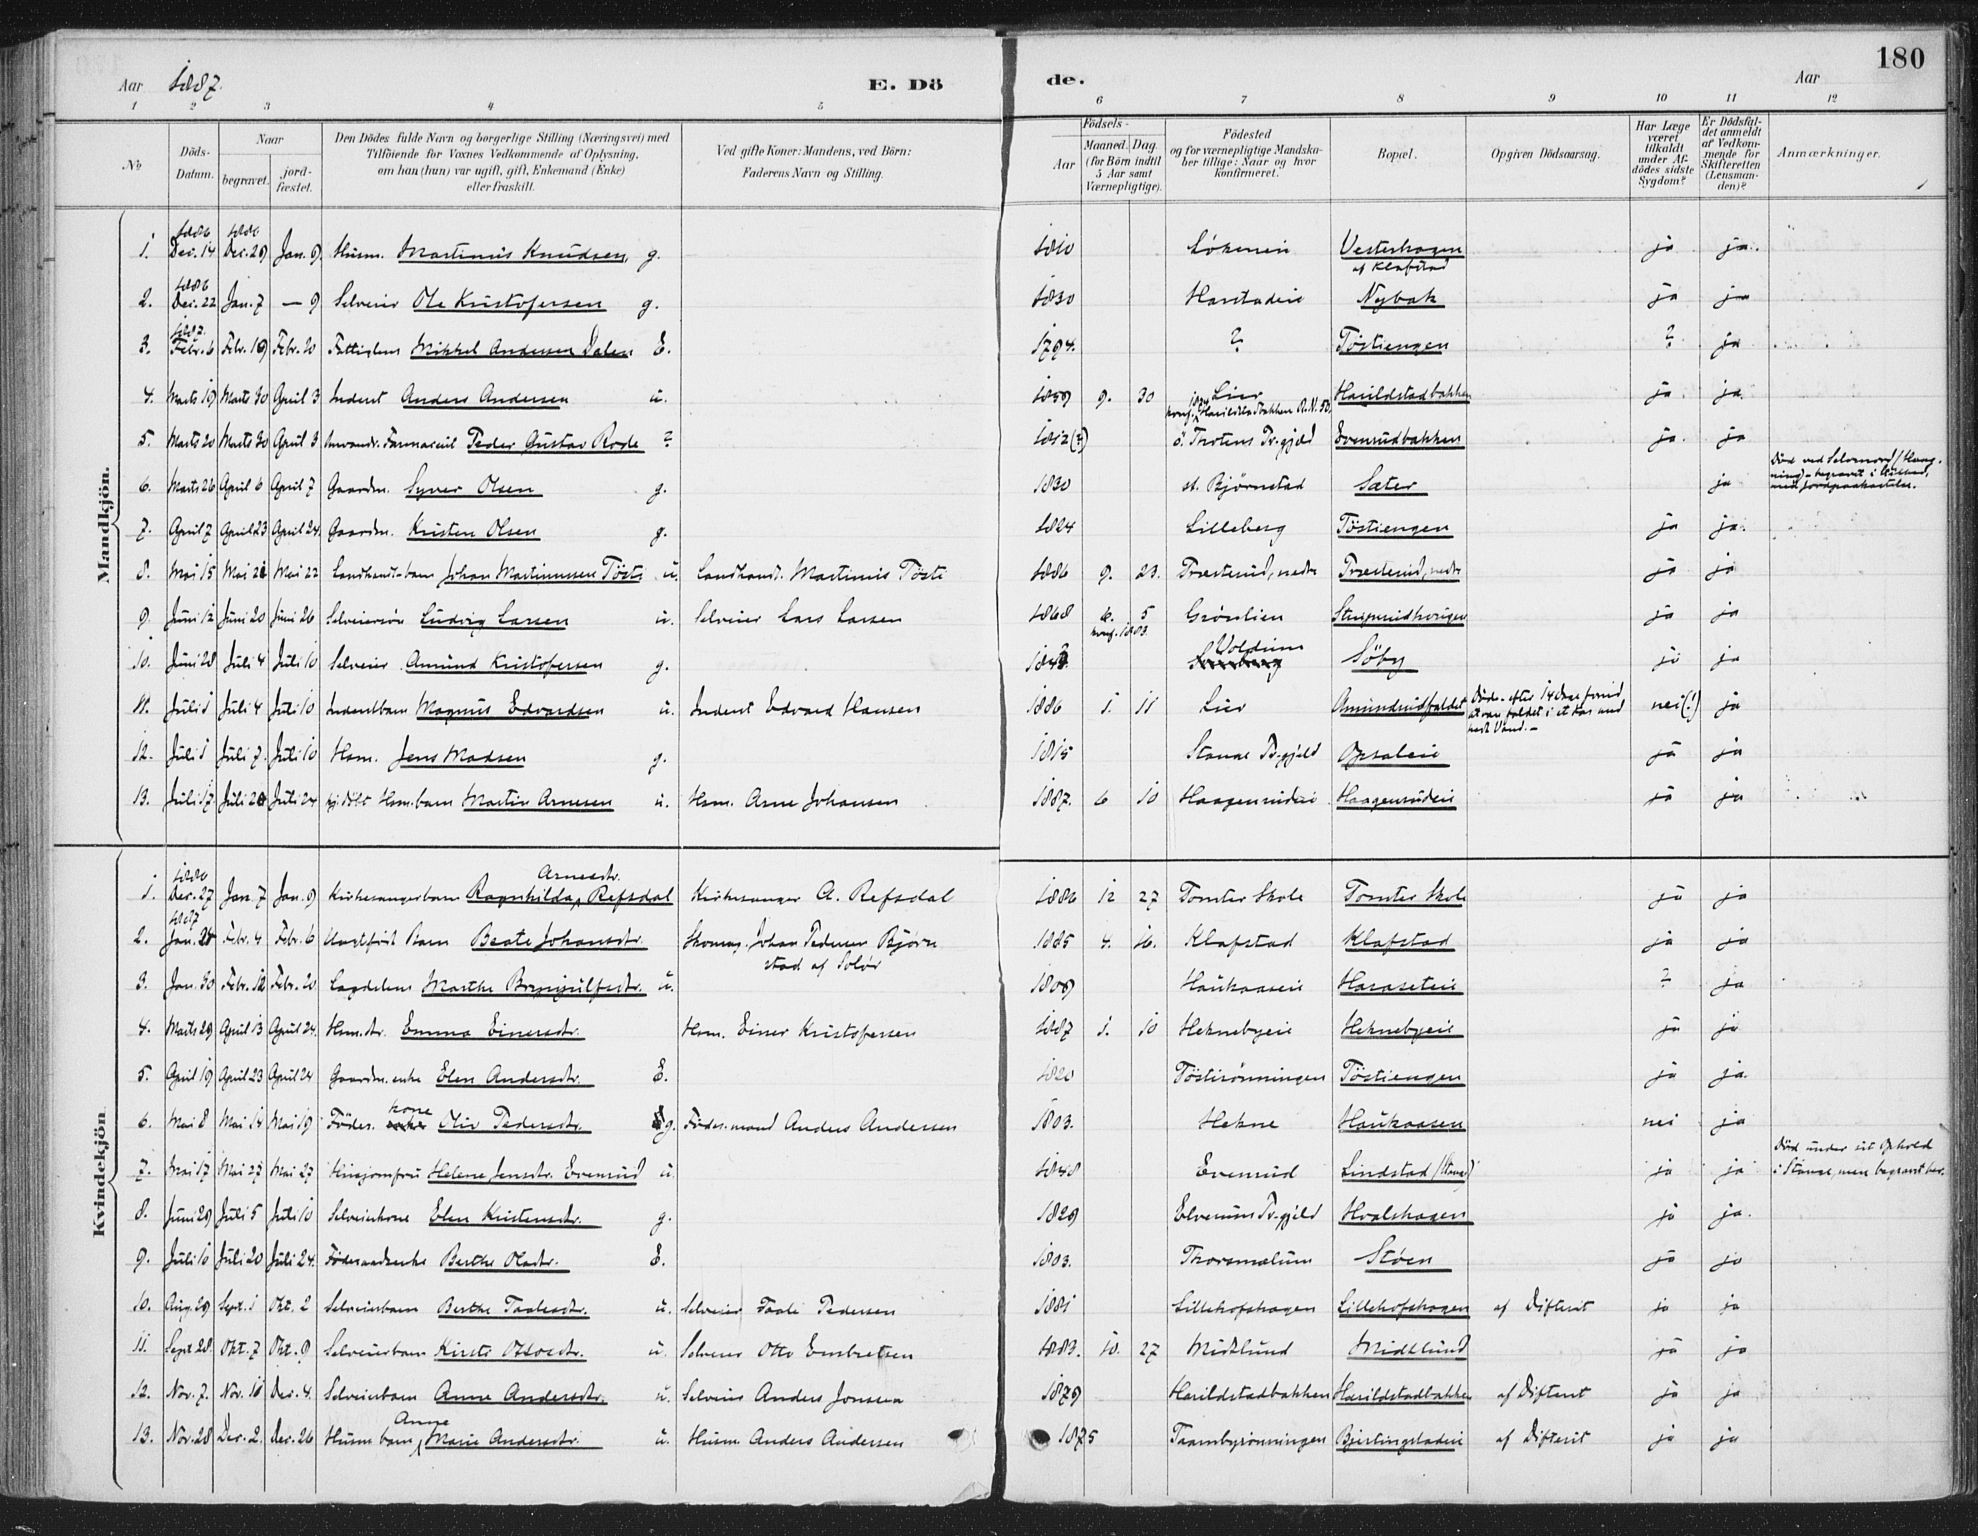 180
Aar 1887. E. Dö de. Aar
1 2 3 4 5 6 7 8 9 10 11 12
No
Döds-Datum.
Naar
begravet.
jord-fæstet.
Den Dödes fulde Navn og borgerlige Stilling (Næringsvei) med
Tilföiende for Voxnes Vedkommende af Oplysning,
om han (hun) var ugift, gift, Enkemand (Enke)
eller fraskilt.
Ved gifte Koner: Mandens, ved Börn:
Faderens Navn og Stilling.
Födsels-
Aar
Maaned. Dag.
(for Börn indtil
5 Aar samt
Værnepligtige).
Födested
og for værnepligtige Mandska-
ber tillige: Naar og hvor
konfirmeret.
Bopæl.
Opgiven Dödsaarsag.
Har Læge
været
tilkaldt
under Af-
dödes sidste
Sygdom?
Er Dödsfal-
det anmeldt
af Vedkom-
mende for
Skifteretten
(Lensman-
den)?
Anmærkninger.
Mandkjön.
1886 1886
1. Dec. 14 Dec. 29 Jan. 9 Husm. Martinus Knudsen, g. 1810 Lökeneie Vesterhagen ja ja
af Klafstad
1886
2. Dec. 22 Jan. 7 — 9 Selveier Ole Kristofersen g. 1830 Harstadeie Nybak ja ja
1887.
3. Febr. 6 Febr. 19 Febr. 20 Fattiglem Mikkel Andersen Dalen E. 1794. ? Töstiengen ? ja
4. Marts 19 Marts 30 April 3 Inderst Anders Andersen u. 1859 9. 30 Lier Harildstadbakken ja ja
5. Marts 20 Marts 30 April 3 Farmaceut Peder Gustav Rode ? 1852(?) ö. Thotens Pr.gjeld Evenrudbakken ja ja
6. Marts 26 April 6 April 7 Gaardm. Syver Olsen g. 1830 st. Björnstad Sæter ja Död ved Selvmord (Hæng-
ning) - begravet i Stilhed,
med Jordpaakastelse.
7. April 7 April 23 April 24. Gaardm. Kristen Olsen g. 1824 Lilleberg Töstiengen ja ja
8. Mai 15 Mai 21 Mai 22 Landhandl-barn Johan Martinussen Tösti u. Landhandl. Martinus Tösti 1886 9. 23. Præsterud, nedre Præsterud, nedre ja ja
9. Juni 12 Juni 20 Juni 26 Selveiersön Ludvig Larsen u. Selveier Lars Larsen 1868 6. 5 Grönlien ja ja
konf. 1883.
10. Juni 28 Juli 4 Juli 10 Selveier Amund Kristofersen g. Voldum Söby ja ja
11. Juli 1 Juli 4 Juli 10 Inderstbarn Magnus Edvardsen u. Inderst Edvard Hansen 1886 1. 11 Lier Amundrudfaldet Döde efter 14 Dage forud
at være faldet i et Kar med
hedt Vand.— nei(!) ja
12. Juli 1 Juli 7. Juli 10 Hsm. Jens Madsen g. 1815 Stange Pr.gjeld Opsaleie ja ja
13. Juli 17 Juli 20 Juli 24 hj. döbt Hsm.barn Martin Arnesen u. Hsm. Arne Johansen 1887. 6 10 Haagenrudeie Haagenrudeie ja ja
Kvindekjön
1886 Arnesdtr.
1. Dec. 27 Jan. 7 Jan. 9 Kirkesangerbarn Ragnhilda Refsdal Kirkesanger A. Refsdal 1886 12 27 Tomter Skole Tomter Skole ja ja
1887
2. Jan. 28 Febr. 4 Febr. 6 Uægtefödt Barn Beate Johansdtr. Skomag. Johan Pedersen Björn- 1885 4. 16. Klafstad Klafstad ja ja
stad af Solör
3. Jan. 30 Febr. 12 Febr. 20 Lægdslem Marthe Brynjulfsdtr. u. 1809 Haukaaseie Haraseteie ? ja
4. Marts 29 April 13 April 24. Hsm.dtr. Emma Einersdtr. Hsm. Einer Kristofersen 1887 1. 10 Heknebyeie Heknebyeie ja ja
5. April 19 April 23 April 24 Gaardm. enke Elen Andersdtr. E. 1820 Töstirönningen Töstiengen ja ja.
kone
6. Mai 8 Mai 14 Mai 19 Födes. enke Oliv Pedersdtr. g. Födes.mand Anders Andersen 1803. Hekne Haukaasen nei ja
7. Mai 17 Mai 27 Mai 27 Husjomfru Helene Jensdtr. Evenrud u. 1848 Evenrud Lindstad (Stange) ja ja Död under sit Ophold
i Stange, men begravet her.
8. Juni 29 Juli 5 Juli 10 Selveierkone Elen Kristensdtr. g. 1829 Elverums Pr.gjeld Hvalshagen ja ja.
9. Juli 10 Juli 20 Juli 24. Föderaadsenke Berthe Olsdtr. E. 1803. Thorsmælum Stöen ja ja
10. Aug. 29 Sept. 1 Okt. 2 Selveierbarn Berthe Taalesdtr. u. Selveier Taale Pedersen 1881 Lillehofshagen Lillehofshagen af Difterit ja ja
11. Sept. 28 Okt. 7 Okt. 9 Selveierbarn Kirsti Ottosdtr. u. Selveier Otto Embretsen 1883. 10. 27 Midtlund Midtlund ja ja
12. Nov. 7. Nov. 16 Dec. 4. Selveierbarn Anne Andersdtr. u. Selveier Anders Jonsen 1879 Harildstadbakken Harildstadbakken af Difterit ja ja
Anne
13. Nov. 28 Dec. 2. Dec. 26 Husm barn Marie Andersdtr. u. Husm Anders Andersen 1875 Taambyrönningen Bjertingstadeie af Difterit ja ja